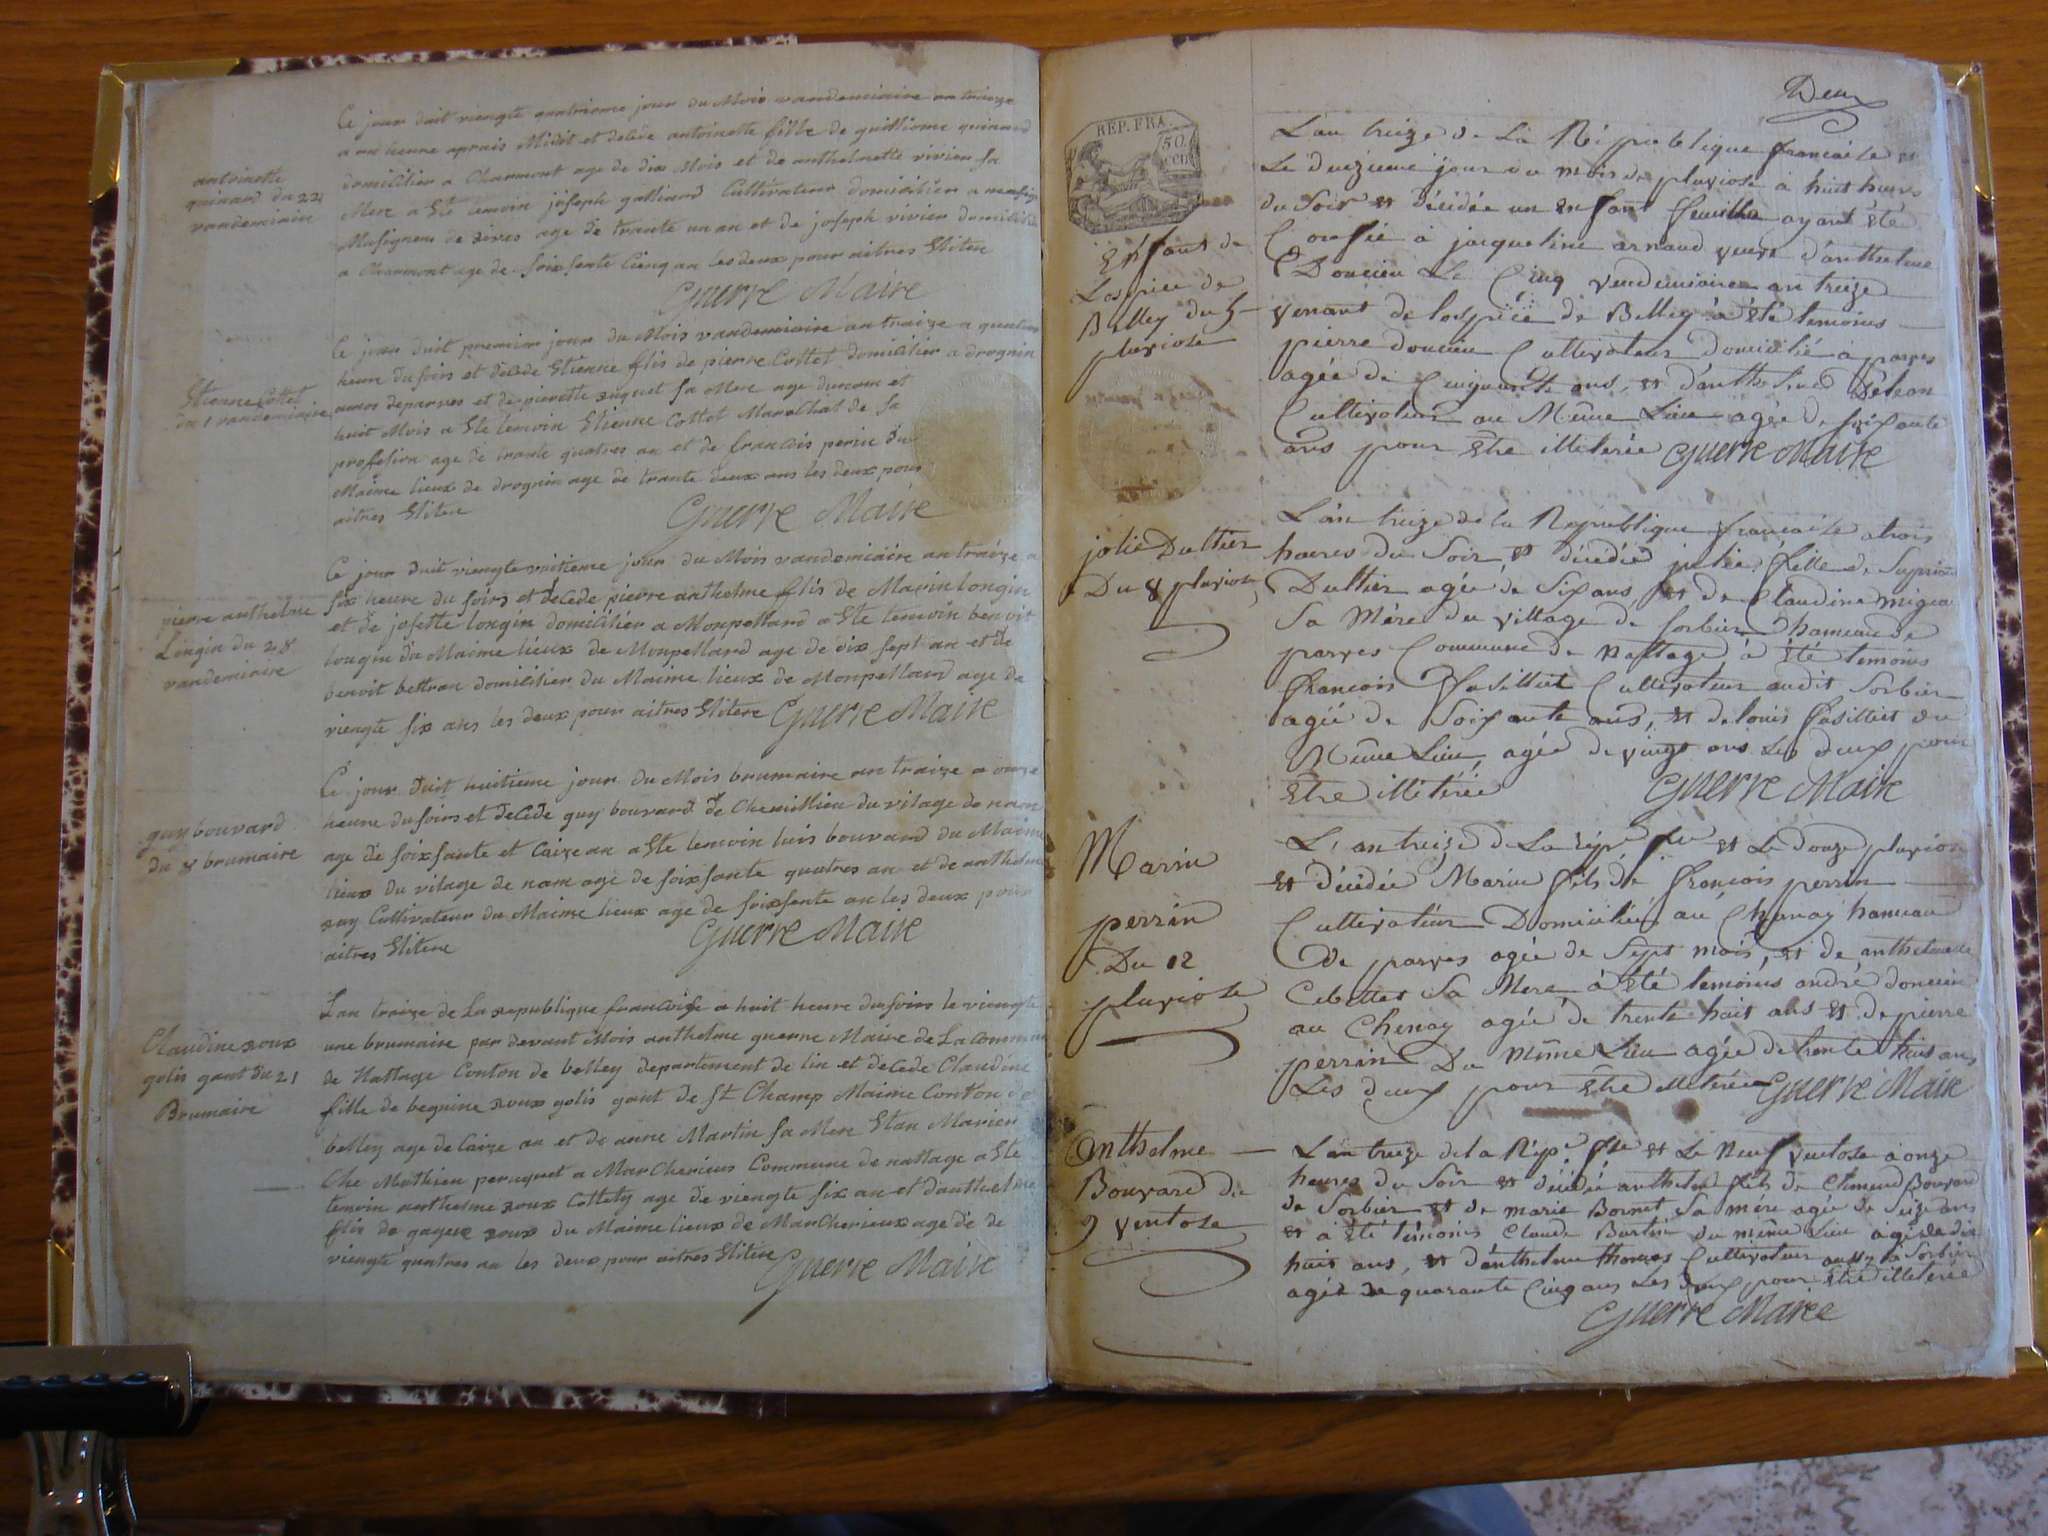 antoinette
guinard du 22
vandemiaire
Ce jour duit viengte quatrieme jour du Mois vandemiaire an traize
a un heure aprais Midit et decede antoinette fille de guilliome guinard
domicilier a Charmont age de dix Mois et de anthelmette vivier sa
Mere a Ste temoin joseph galliard Cultivateur domicilier a
Musignen de age de trante un an et de joseph vivier domicilier
a Charmont age de soixsente Cienq an les deux pour aitres Elitere
Guerre Maire
Etienne Cottet
du 1 vandemiaire
Ce jour duit premier jour du Mois vandemiaire an traize a quatres
heure du soirs et decede Etienne flis de pierre Cottet domicilier a drognin
de parves et de pierette suquet sa Mere age et
huit Mois a Ste temoin Etienne Cottet Marechal de sa
profesion age de trante quatres an et de francois perin du
Maime lieux de drognin age de trante deux ans les deux pour
aitres Elitere
Guerre Maire
pierre anthelme
Longin du 28
vandemiaire
Ce jour duit viengte vuitieme jour du Mois vandemiaire an traize a
six heure du soirs et decede pierre anthelme flis de Marin Longin
et de josette longin domicilier a Monpellard a Ste temoin benoit
longin du Maime lieux de Monpellard age de dix sept an et de
benoit bettran domicilier du Maime lieux de Monpellard age de
viengte six ans les deux pour aitres Elitere Guerre Maire
guy bouvard
du 8 brumaire
Ce jour Duit huitieme jour du Mois brumaire an traize a onze
heure du soirs et decede guy bouvard de Chemillieu du vilage de nam
age de soixsante et Caize an a Ste temoin luis bouvard du Maime
lieux du vilage de nam age de soixsante quatres an et de anthelme
ruy Cultivateur du Maime lieux age de soixsente an les deux pour
aitres Elitere
Guerre Maire
Claudine roux
golis gant du 21
Brumaire
L'an traize de La republique francoise a huit heure du soirs le viengte
une brumaire par devant Mois anthelme guerre Maire de La Commune
de Nattage Conton de belley departement de lin et decede Claudine
fille de begnine roux golis gant de St Champ Maime Conton de
belley age de Caize an et de anne Martin sa Mere Etan Marier
Che Mathieu peruquet a Marcherieux Commune de nattage a Ste
temoin anthelme roux Collety age de viengte six an et danthelme
flis de gagere roux du Maime lieux de Marcherieux age de de
viengte quatres an les deux pour aitres Elitere
Guerre Maire
Deux
REP. FRA.
50.
Enfant de
Lospice de
Belley du 5
pluviose
L'an treize de La République francaise et
Le duizieme jour du mois de pluviose à huit heures
du Soir est décédée un enfant femille ayant été
Confié à jacqueline arnaud veuve d'anthelme
Doucieu Le Cinq Vendemiaire an treize
venant de lospice de Belley à été temoins
pierre doucieu Cultivateur domicilié à parves
agée de Cinquante ans, et d'anthelme
Cultivateur au Même Lieu agée de soixante
ans pour Etre illiterée Guerre Maire
jolie Duthier
Du 8 pluviose
L'an treize de la République francaise a trois
heures du Soir est décédée julie fille de
Duthier agée de Six ans, et de Claudine
Sa Mére du village de sorbier hameau de
parves Commune de Nattage à été temoins
francois Cultivateur audit Sorbier
agée de Soixante ans, et de louis du
Même Lieu, agée de vingt ans Les deux pour
Etre illiterée
Guerre Maire
Marin
perrin
Du 12
pluviose
L'an treize de La répe fse et Le douze pluviose
est décédée Marin fils de francois perrin
Cultivateur Domicilié au Chanay hameau
De parves agée de Sept mois, et de anthelmette
Sa Mere à été temoins andré doucieu
au Chenay agée de trente huit ans et de pierre
perrin Du même Lieu agée de trente huit ans
Les deux pour Etre illiterée Guerre Maire
Anthelme
Bouvard du
9 ventose
L'an treize de la Répe fse et Le Neuf ventose à onze
heures du Soir est décédé anthelme fils de Clemend Bouvard
de Sorbier et de marie Bornet Sa mère agée de Seize ans
et à été témoins Claude Burtin du même Lieu agée de dix
huit ans, et d'anthelme thomas Cultivateur aussy à Sorbier
agée de quarante Cinq ans Les deux pour Etre illiterée
Guerre Maire